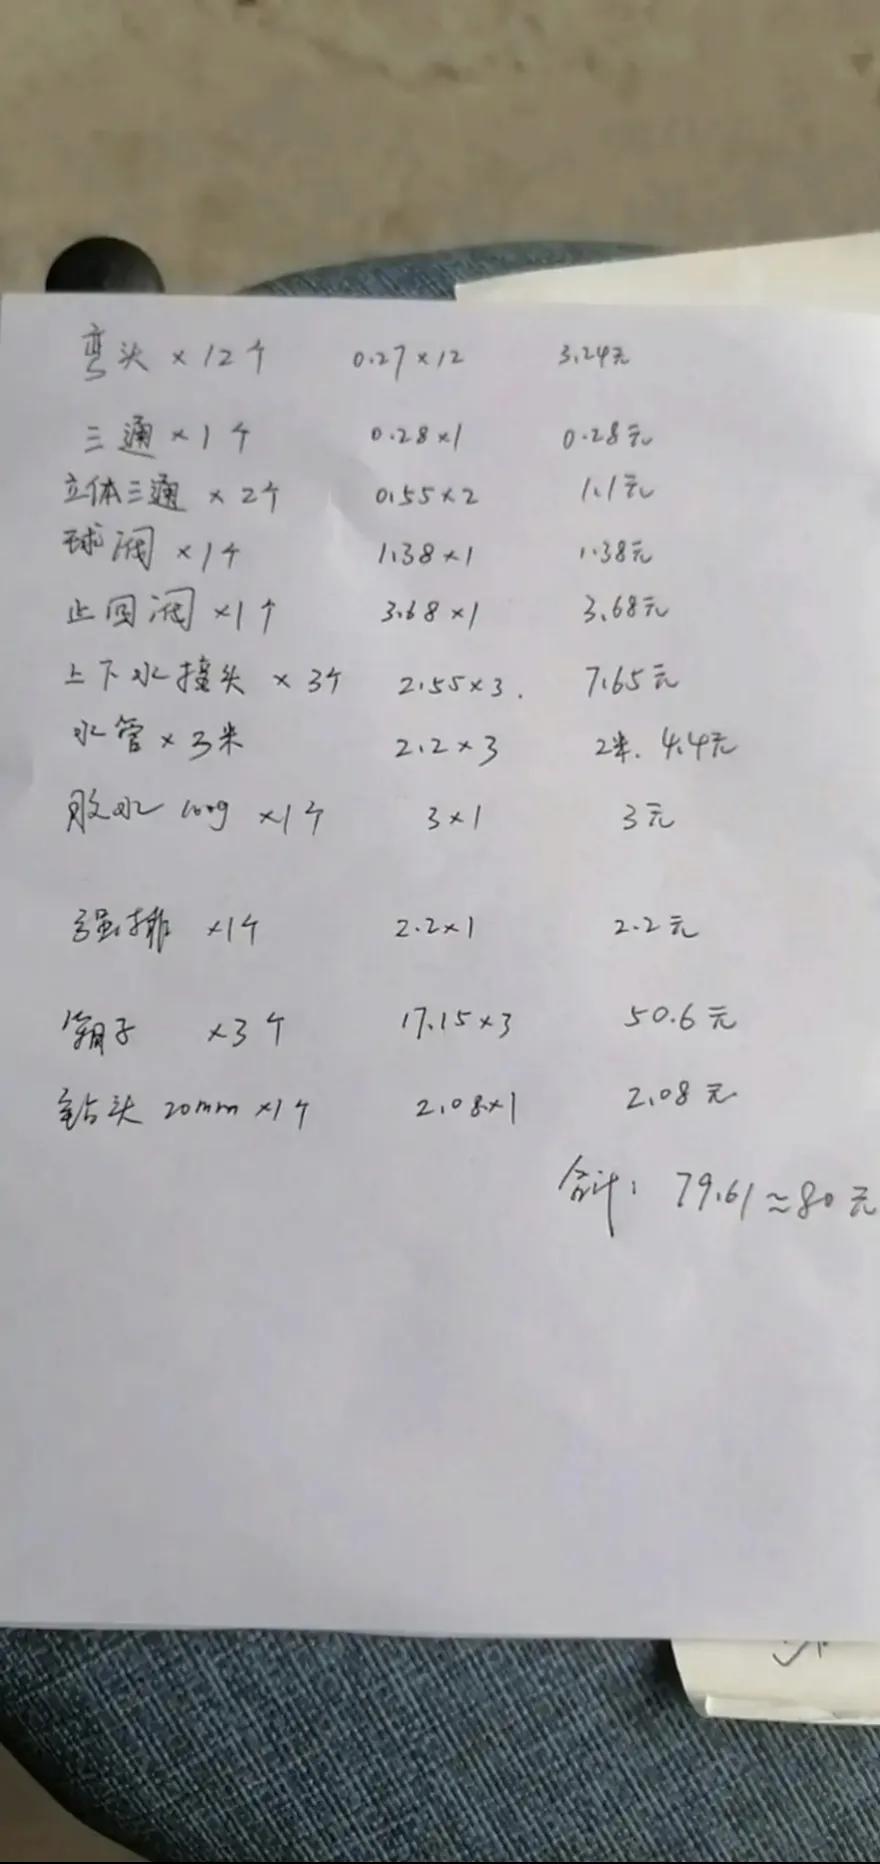 弯头 × 12个 0.27 × 12 3.24元
三通 × 1个 0.28 × 1 0.28元
立体三通 × 2个 0.55 × 2 1.1元
球阀 × 1个 1.38 × 1 1.38元
止回阀 × 1个 3.68 × 1 3.68元
上下水接头 × 3个 2.55 × 3. 7.65元
水管 × 3米 2.2 × 3 2米. 4.4元
胶水 100g × 1个 3 × 1 3元
强排 × 1个 2.2 × 1 2.2元
箱子 × 3个 17.15 × 3 50.6元
钻头 20mm × 1个 2.08 × 1 2.08元
合计: 79.61 ≈ 80元